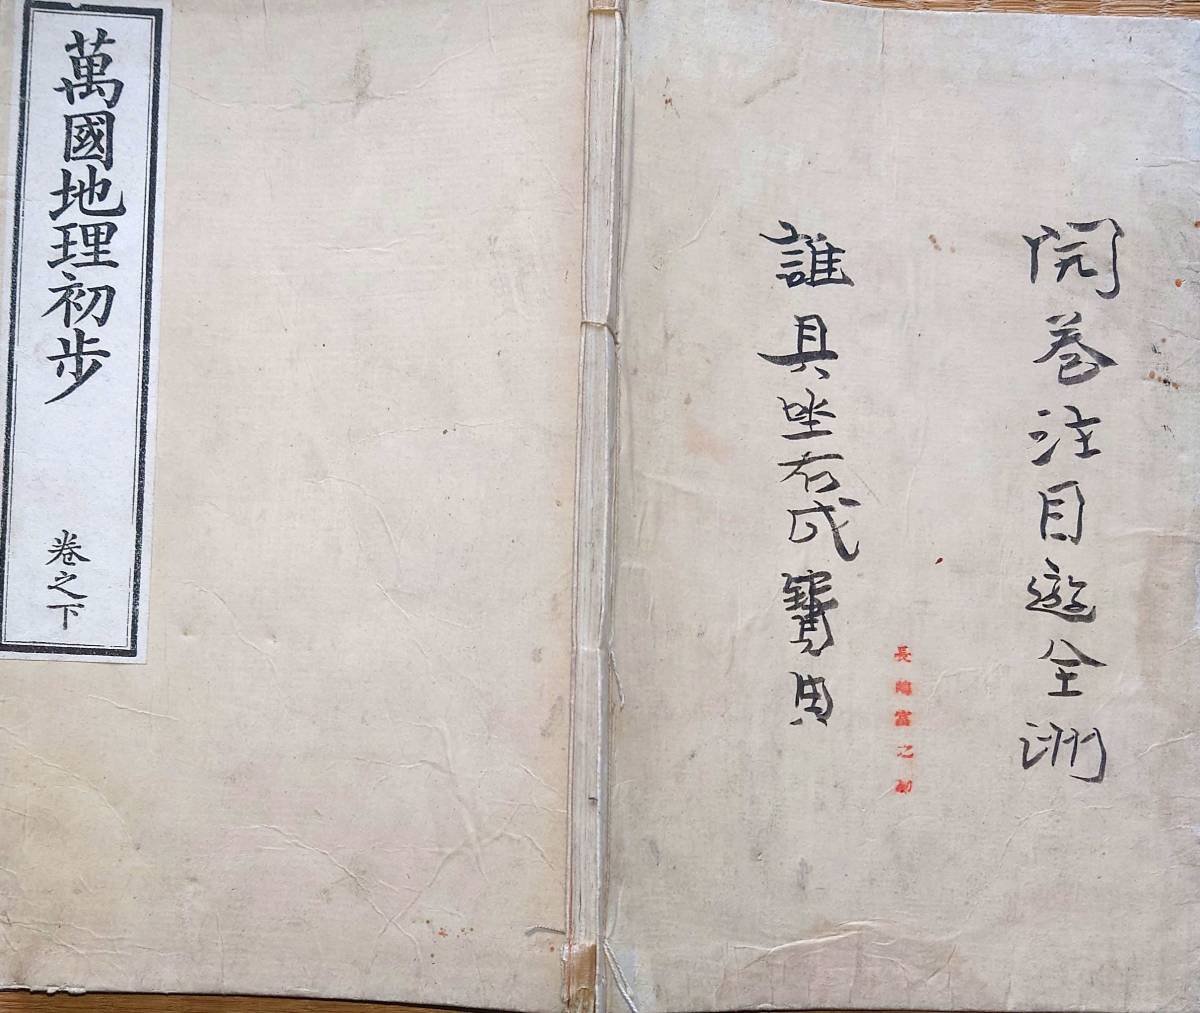 開巻注目遊全洲
誰具坐右成寶典
長嶋富之初
萬國地理初歩
卷之下